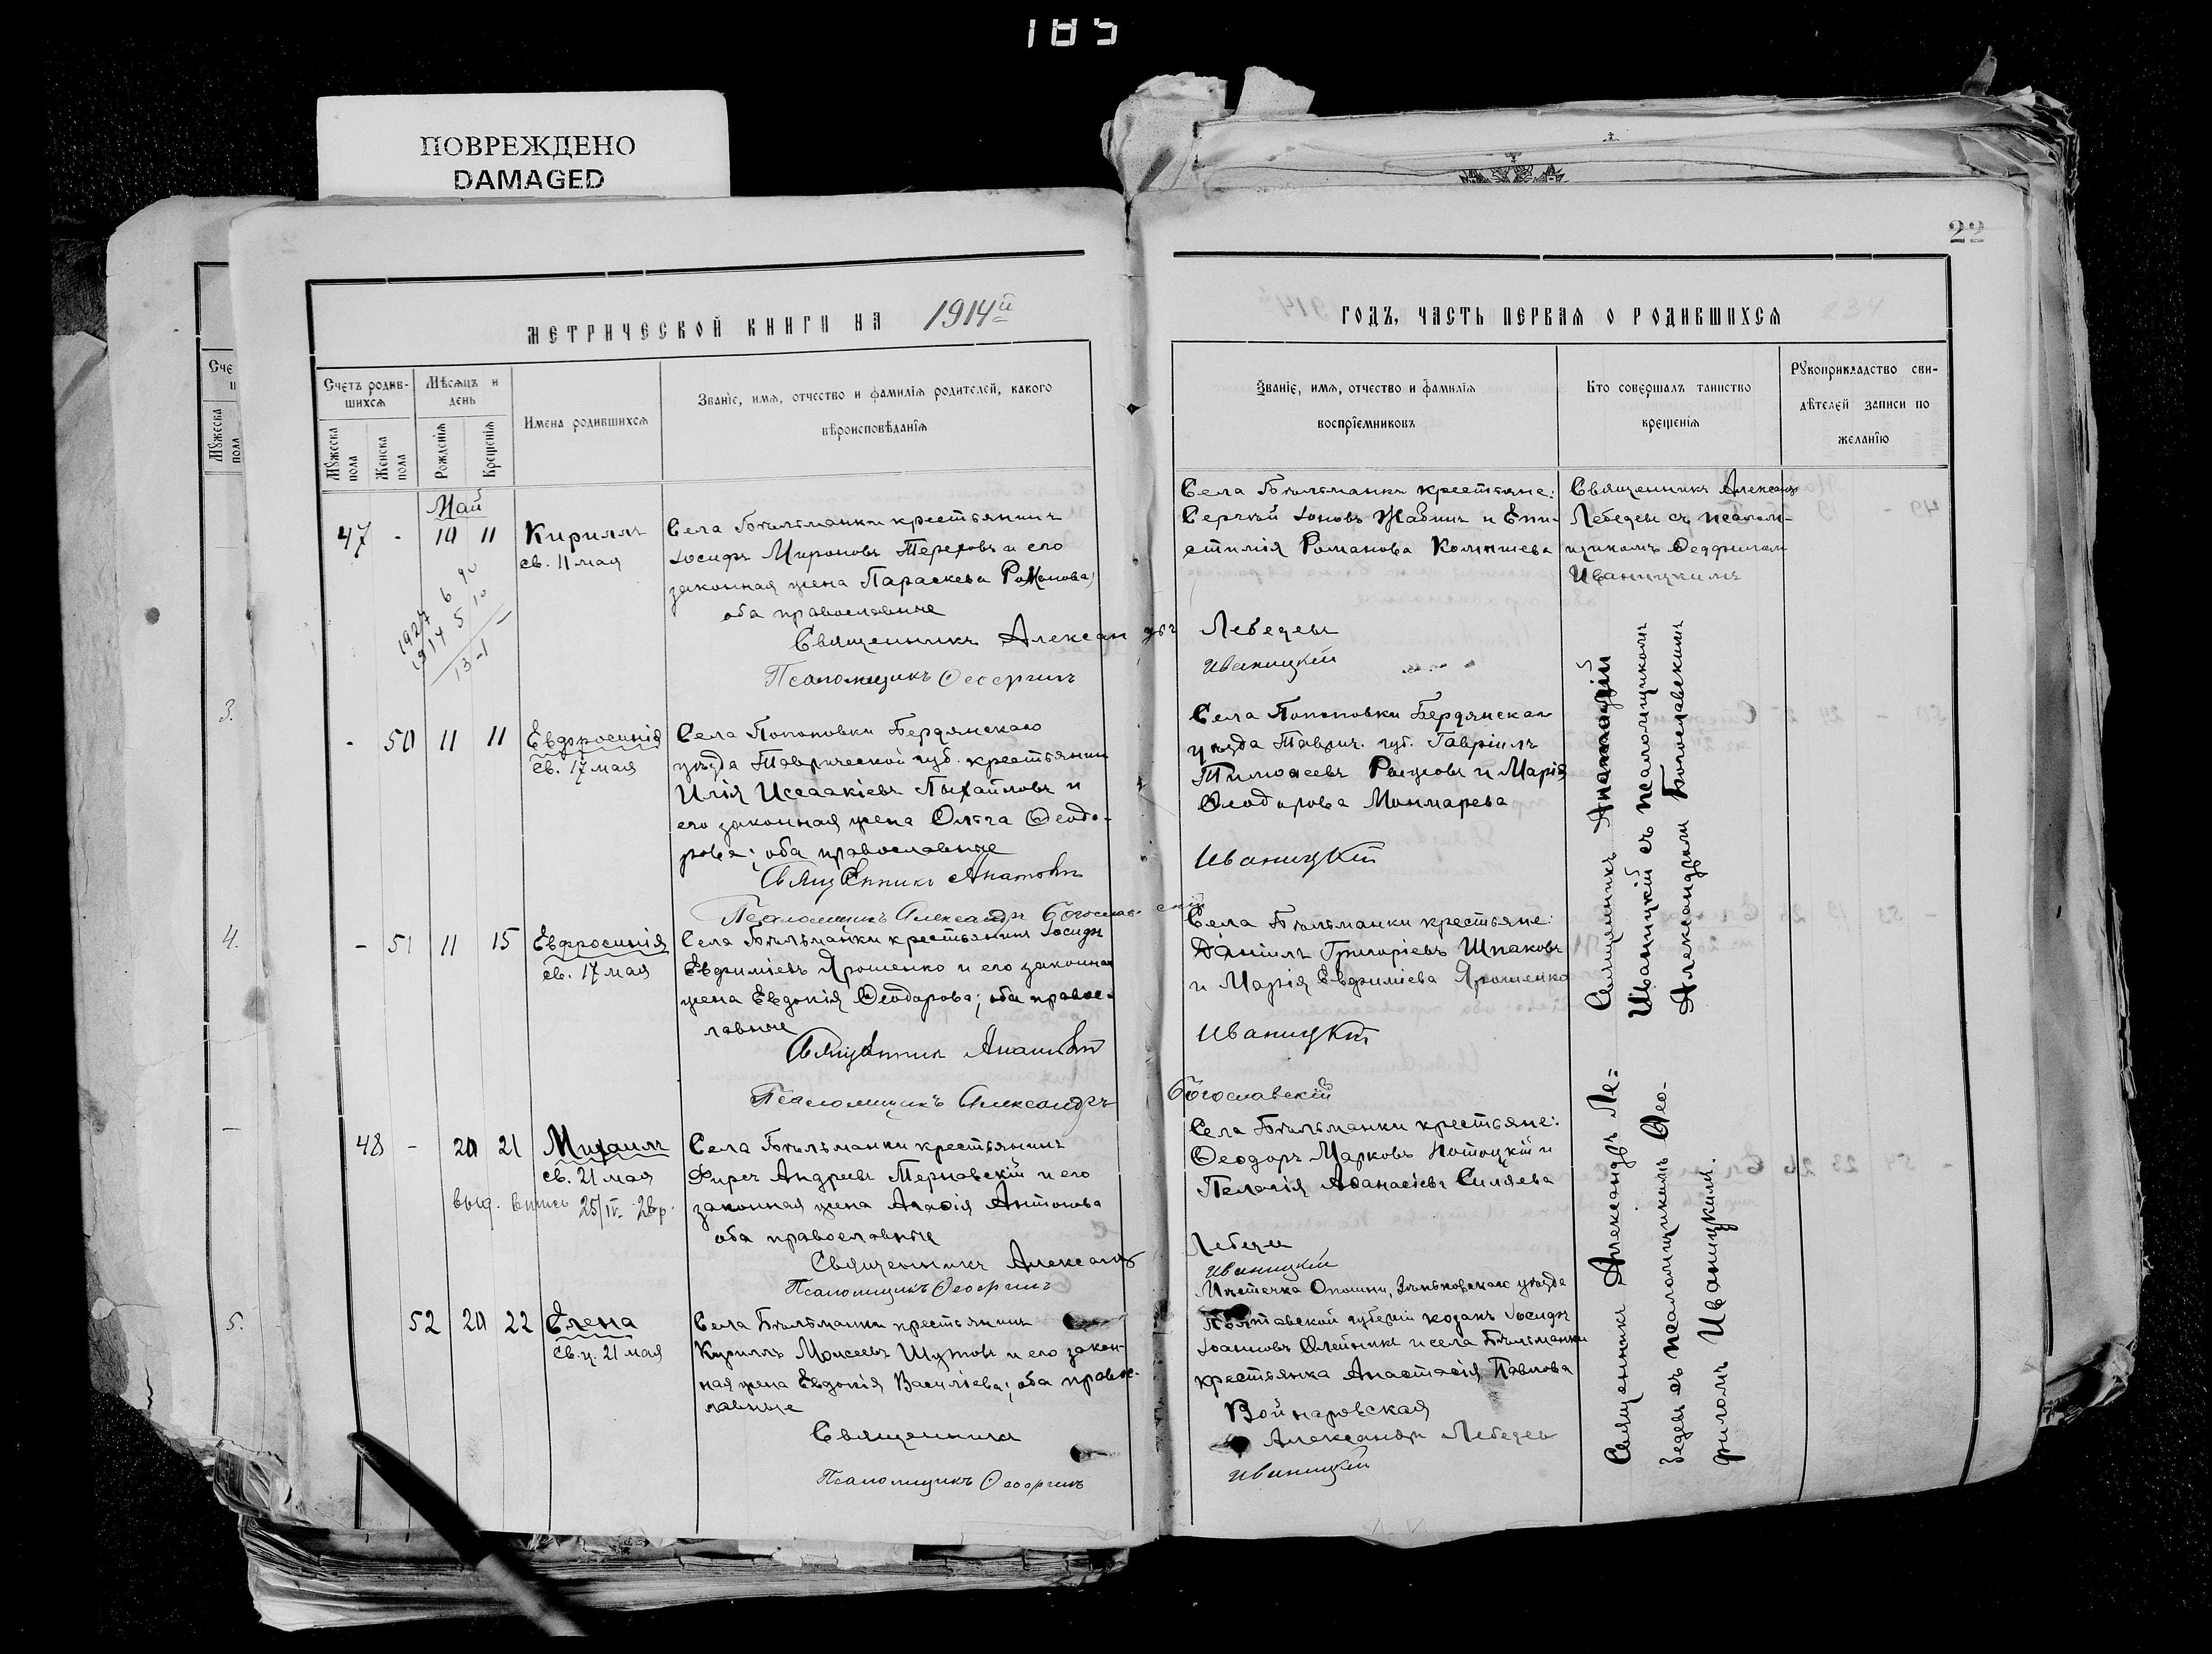 185
ПОВРЕЖДЕНО
DAMAGED
22
МЕТРИЧЕСКОЙ КНИГИ НА 1914й
ГОДЪ, ЧАСТЬ ПЕРВАЯ О РОДИВШИХСЯ
Счетъ родив-
шихся
Мѣсяцъ и
день
Мужеска
пола
Женска
пола
Рожденія
Крещенія
Имена родившихся
Званіе, имя, отчество и фамилія родителей, какого
вѣроисповѣданія
Званіе, имя, отчество и фамилія
воспріемниковъ
Кто совершалъ таинство
крещенія
Рукоприкладство сви-
дѣтелей записи по
желанію
Май
47 - 10 11 Кириллъ
св. 11 мая
Села Бѣльманки крестьянинъ
Іосифъ Мироновъ Тереховъ и его
законная жена Параскева Романова;
оба православные
Священникъ Александръ Лебедевъ
Псаломщикъ Ѳеофилъ Иваницкій
Села Бѣльманки крестьяне:
Сергѣй Іоновъ Жабинъ и Епи-
стимія Романова
Священникъ Александръ
Лебедевъ съ псалом-
щикомъ Ѳеофиломъ
Иваницкимъ
1927 6
1914 5 10
13 -1
- 50 11 11 Евфросинія
св. 17 мая
Села Попоновки Бердянскаго
уѣзда Таврической губ. крестьянинъ
Илія Исаакіевъ и
его законная жена Ольга Ѳеодо-
рова; оба православные
Священникъ Анатолій Иваницкій
Псаломщикъ Александръ Богославскій
Села Попоновки Бердянскаго
уѣзда Таврич. губ. Гавріилъ
Тимоѳеевъ и Марія
Ѳеодорова
- 51 11 15 Евфросинія
св. 17 мая
Села Бѣльманки крестьянинъ Іосифъ
Евфиміевъ Ярошенко и его законная
жена Евдокія Ѳеодорова; оба правос-
лавные
Священникъ Анатолій Иваницкій
Псаломщикъ Александръ Богославскій
Села Бѣльманки крестьяне:
Даніилъ Григоріевъ Шпаковъ
и Марія Евфиміева Ярошенко
Священникъ Анатолій
Иваницкій съ псаломщикомъ
Александромъ Богославскимъ
48 - 20 21 Михаилъ
св. 21 мая
выд. выпись 25/IV. 26 р.
Села Бѣльманки крестьянинъ
Фирсъ Андреевъ Терновскій и его
законная жена Агафія Антонова
оба православные
Священникъ Александръ Лебедевъ
Псаломщикъ Ѳеофилъ Иваницкій
Села Бѣльманки крестьяне:
Ѳеодоръ Марковъ Потоцкій и
Пелагія Аѳанасіева Силяева
52 20 22 Елена
св. ц. 21 мая
Села Бѣльманки крестьянинъ
Кириллъ Моисеевъ Шутовъ и его закон-
ная жена Евдокія Василіева; оба правос-
лавные
Священникъ Александръ Лебедевъ
Псаломщикъ Ѳеофилъ Иваницкій
Мѣстечка Опошни, Зѣньковскаго уѣзда
Полтавской губерніи козакъ Іосифъ
Іоанновъ Олейникъ и села Бѣльманки
крестьянка Анастасія Павлова
Войнаровская
Священникъ Александръ Ле-
бедевъ съ псаломщикомъ Ѳео-
филомъ Иваницкимъ.
3.
4.
5.